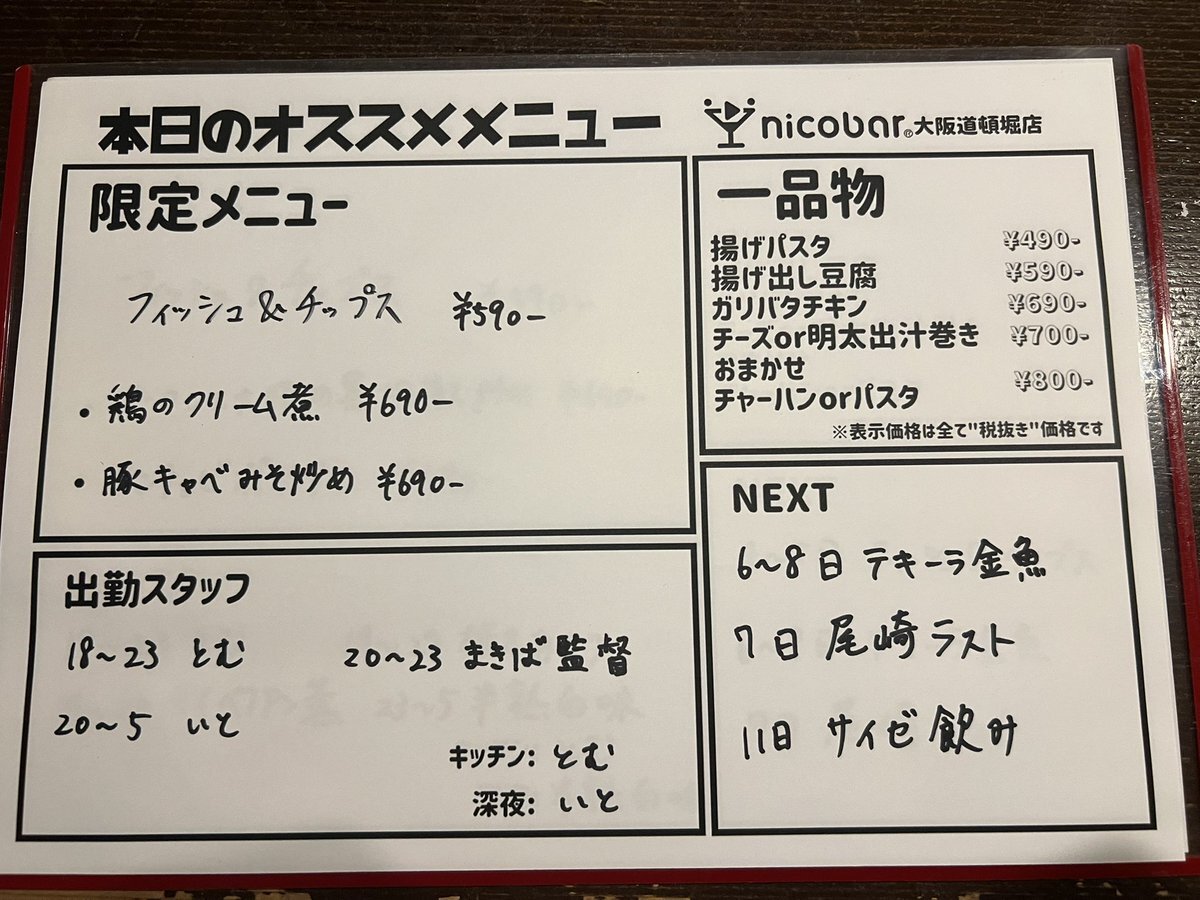 本日のオススメメニュー
nicobar® 大阪道頓堀店
限定メニュー
フィッシュ&チップス ¥590-
・鶏のクリーム煮 ¥690-
・豚キャベみそ炒め ¥690-
一品物
揚げパスタ ¥490-
揚げ出し豆腐 ¥590-
ガリバタチキン ¥690-
チーズor明太出汁巻き ¥700-
おまかせ
チャーハンorパスタ ¥800-
※表示価格は全て"税抜き"価格です
出勤スタッフ
18〜23 とむ 20〜23 まきば監督
20〜5 いと
キッチン: とむ
深夜: いと
NEXT
6〜8日 テキーラ金魚
7日 尾崎ラスト
11日 サイゼ飲み